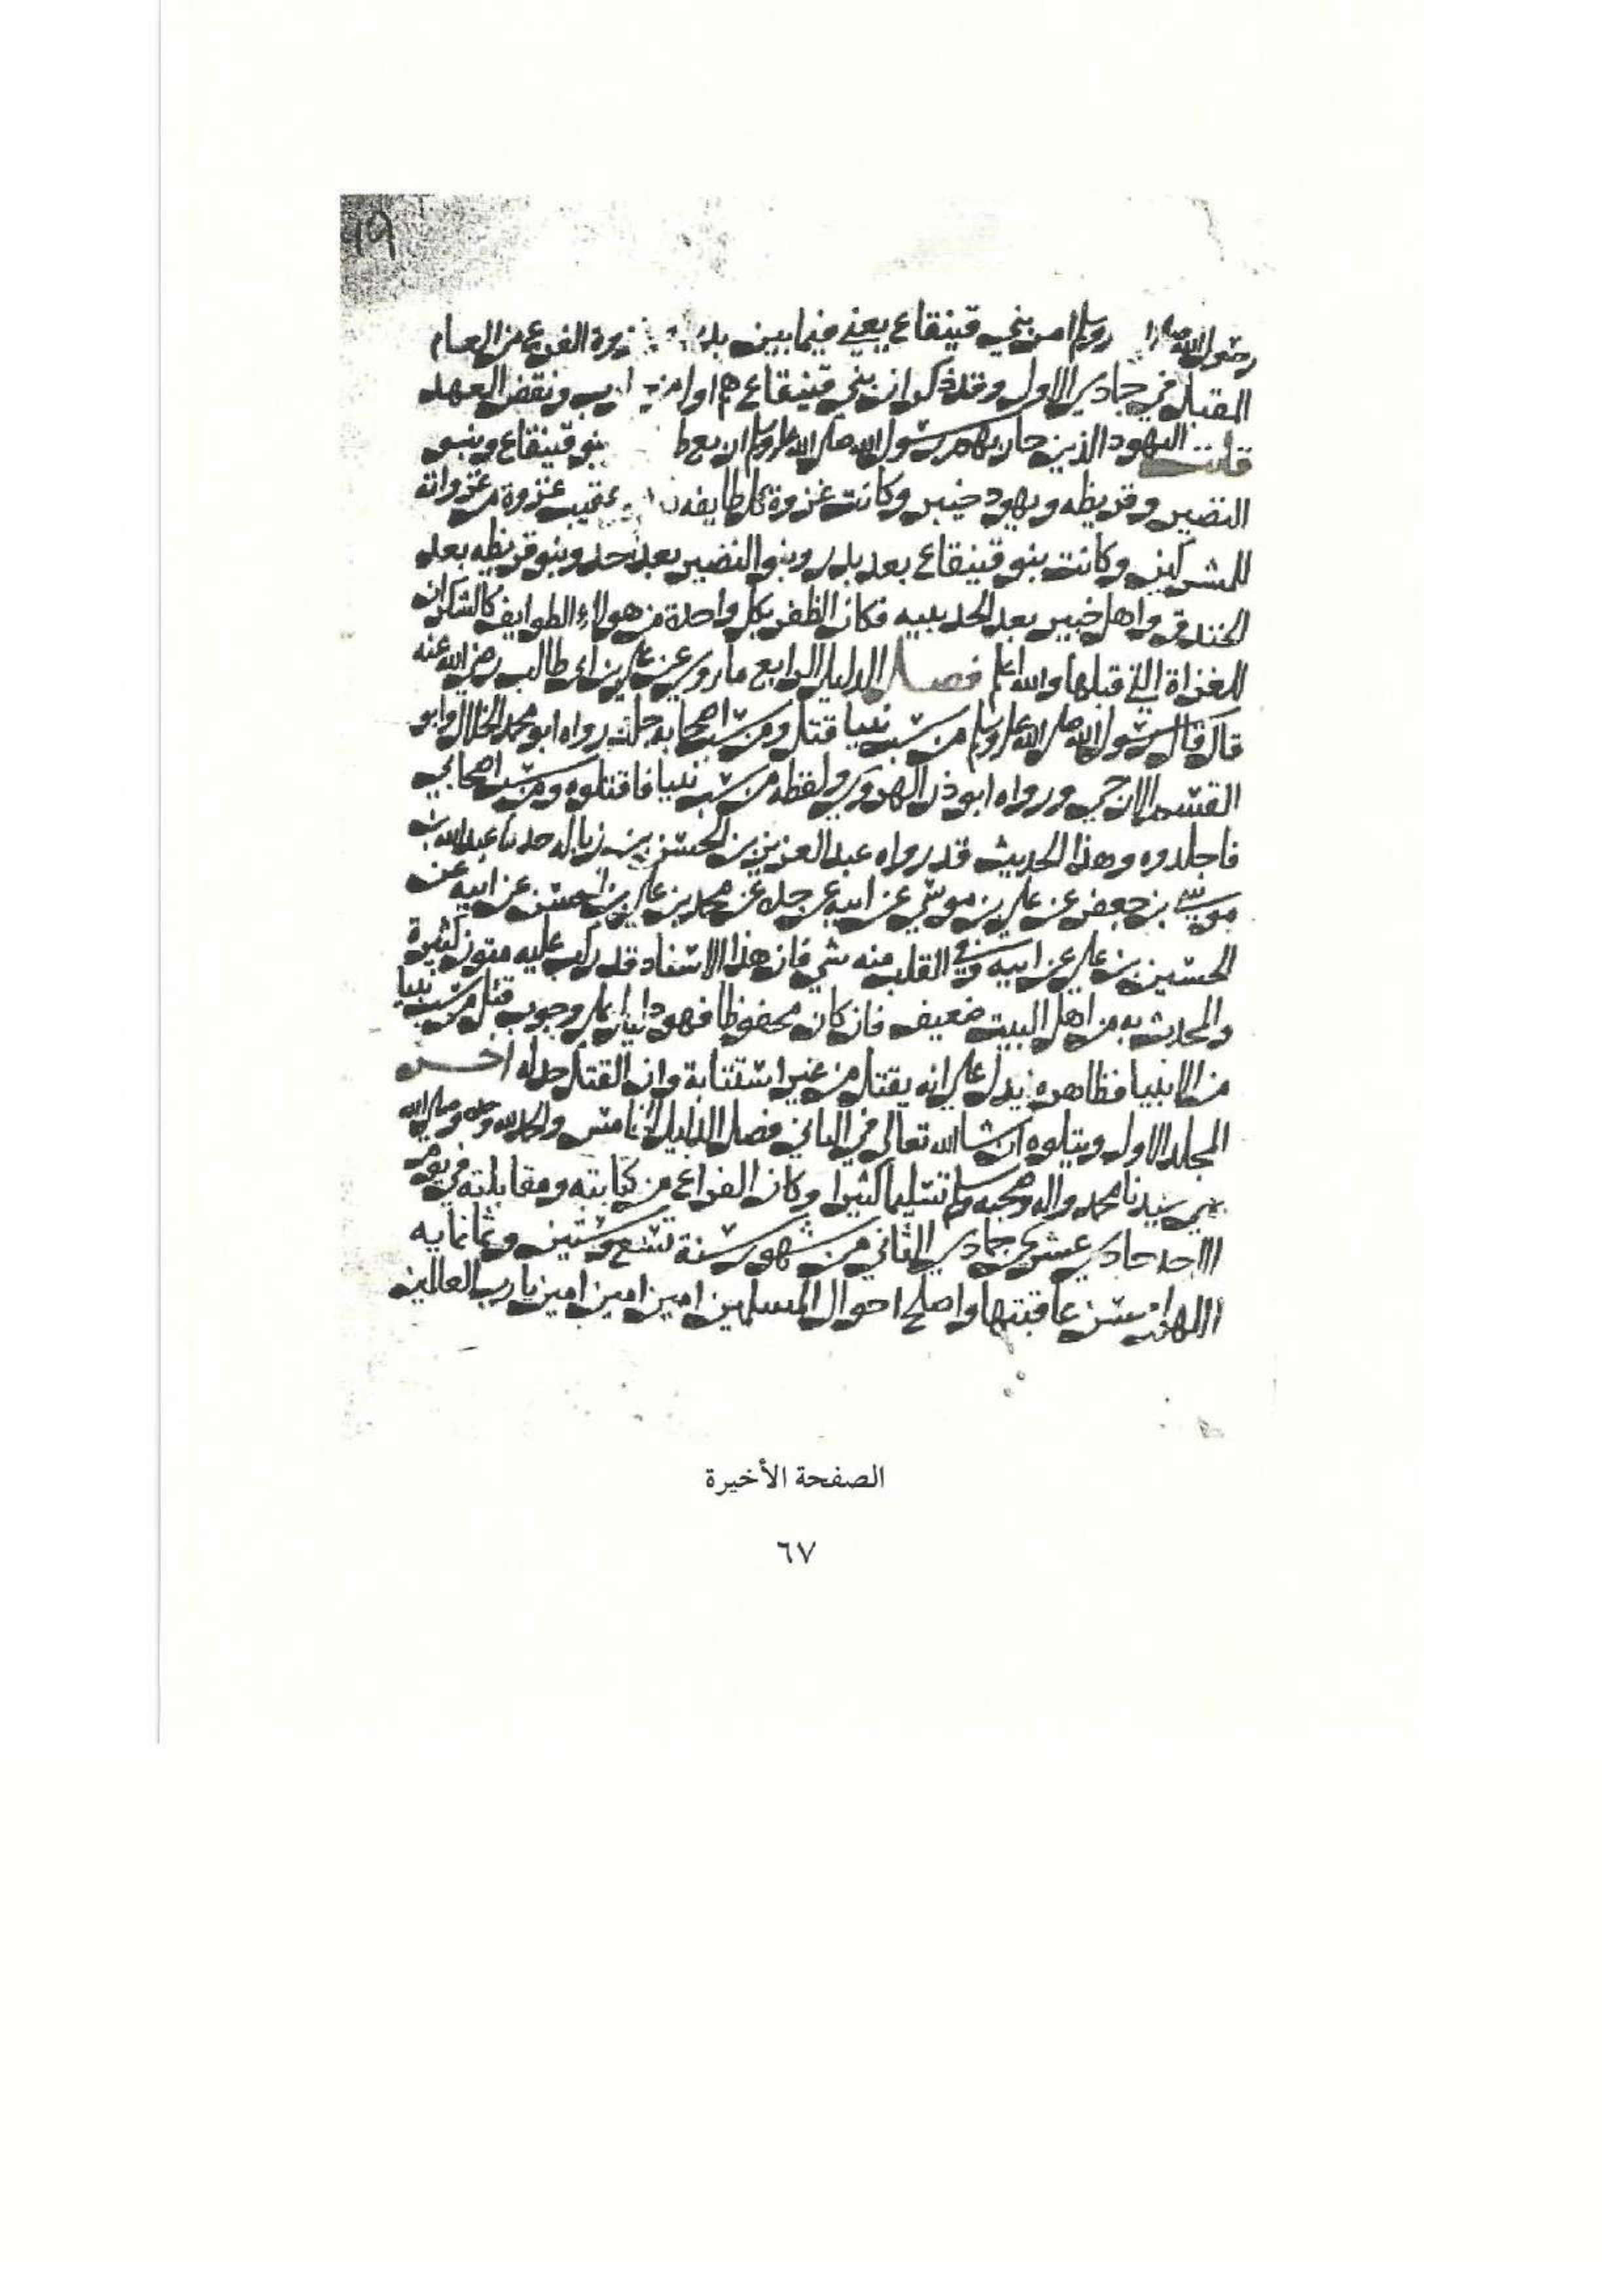 ١٩
رسول الله وسلم امر بني قينقاع يعني فيما بين بدر الفرع من العام
المقبل في جمادي الاول وقد ذكر ان بني قينقاع هم اول من ونقض العهد
قلت اليهود الذين حاربهم رسول الله صلى الله عليه وسلم اربع بنو قينقاع وبنو
النضير وقريظه ويهود خيبر وكانت غزوة كل طايفه عقيب غزوة من غزواته
للمشركين وكانت بنو قينقاع بعد بدر وبنو النضير بعد احد وبنو قريظه بعد
الخندق واهل خيبر بعد الحديبيه فكان الظفر بكل واحدة من هولاء الطوايف كالشكران
للغزاة التي قبلها والله اعلم فصل الدليل الرابع ما روي عن علي بن ابي طالب رضي الله عنه
قال قال رسول الله صلى الله عليه وسلم من سب نبيا قتل ومن سب اصحابه جلد رواه ابو محمد الخلال وابو
القسم الازجي ورواه ابو ذر الهروي ولفظه من سب نبيا فاقتلوه ومن سب اصحابي
فاجلدوه وهذا الحديث قد رواه عبد العزيز بن الحسن بن زباله حدثنا عبد الله بن
موسى بن جعفر عن علي بن موسى عن ابيه عن جده عن محمد بن علي بن الحسين عن ابيه عن
الحسين بن علي عن ابيه وفي القلب منه شي فان هذا الاسناد قد ركب عليه متون كثيرة
والمحدث به من اهل البيت ضعيف فان كان محفوظا فهو دليل على وجوب قتل من سب نبيا
من الانبيا فظاهره يدل على انه يقتل من غير استتابة وان القتل حد له اخر
المجلد الاول ويتلوه ان شا الله تعالى في الثاني فصل الدليل الخامس والحمد لله وحده وصلى الله
على سيدنا محمد واله وصحبه وسلم تسليما كثيرا وكان الفراغ من كتابته ومقابلته في يوم
الاحد حادي عشري جمادي الثاني من شهور سنة تسع وستين وثمانمايه
اللهم احسن عاقبتها واصلح احوال المسلمين امين امين امين يا رب العالمين
الصفحة الأخيرة
٦٧